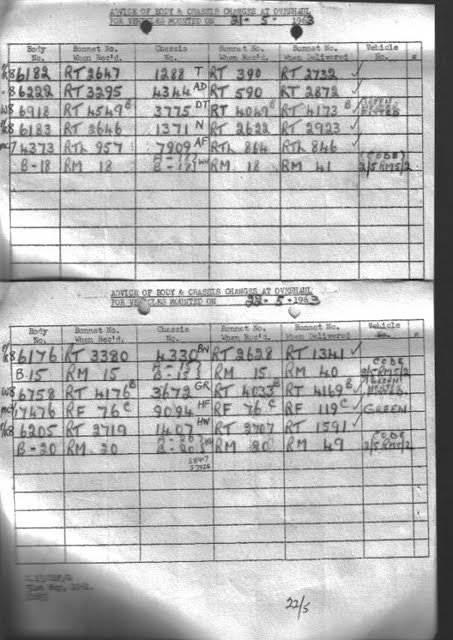 ADVICE OF BODY & CHASSIS CHANGES AT OVERHAUL
FOR VEHICLES MOUNTED ON 21-5-1963
Body No. Bonnet No. When Rec'd. Chassis No. Bonnet No. When Rec'd. Bonnet No. When Delivered Vehicle No.
8 6182 RT 2647 1288 T RT 390 RT 2732 ✓
8 6222 RT 3295 4344 AD RT 590 RT 2872 ✓
W8 6918 RT 4549 B 3775 DT RT 4049 B RT 4173 B GREEN HEATED
8 6183 RT 2646 1371 N RT 2622 RT 2923 ✓
7 4373 RTH 957 7909 AF RTH 864 RTH 846 ✓
B-18 RM 18 A-18 B-18 RM 18 RM 41 (CODE) 2/5RM5/2
ADVICE OF BODY & CHASSIS CHANGES AT OVERHAUL
FOR VEHICLES MOUNTED ON 22-5-1963
Body No. Bonnet No. When Rec'd. Chassis No. Bonnet No. When Rec'd. Bonnet No. When Delivered Vehicle No.
8 6176 RT 3380 4330 BN RT 2628 RT 1341 ✓
B-15 RM 15 A-15 B-15 RM 15 RM 40 CODE 2/5RM5/2
W8 6758 RT 4176 B 3672 GR RT 4033 B RT 4169 B GREEN HEATED
7476 RF 76 C 9094 HF RF 76 C RF 119 C ✓ GREEN
8 6205 RT 2719 1407 HW RT 2707 RT 1591 ✓
B-20 RM 20 A-20 B-20 RM 20 RM 49 CODE 2/5RM5/2
22/5